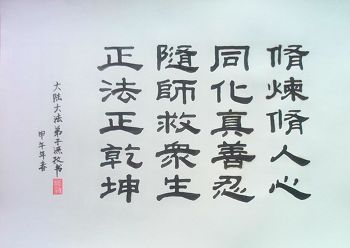 脩煉脩人心
同化真善忍
隨師救衆生
正法正乾坤
大陆大法弟子
甲午年春